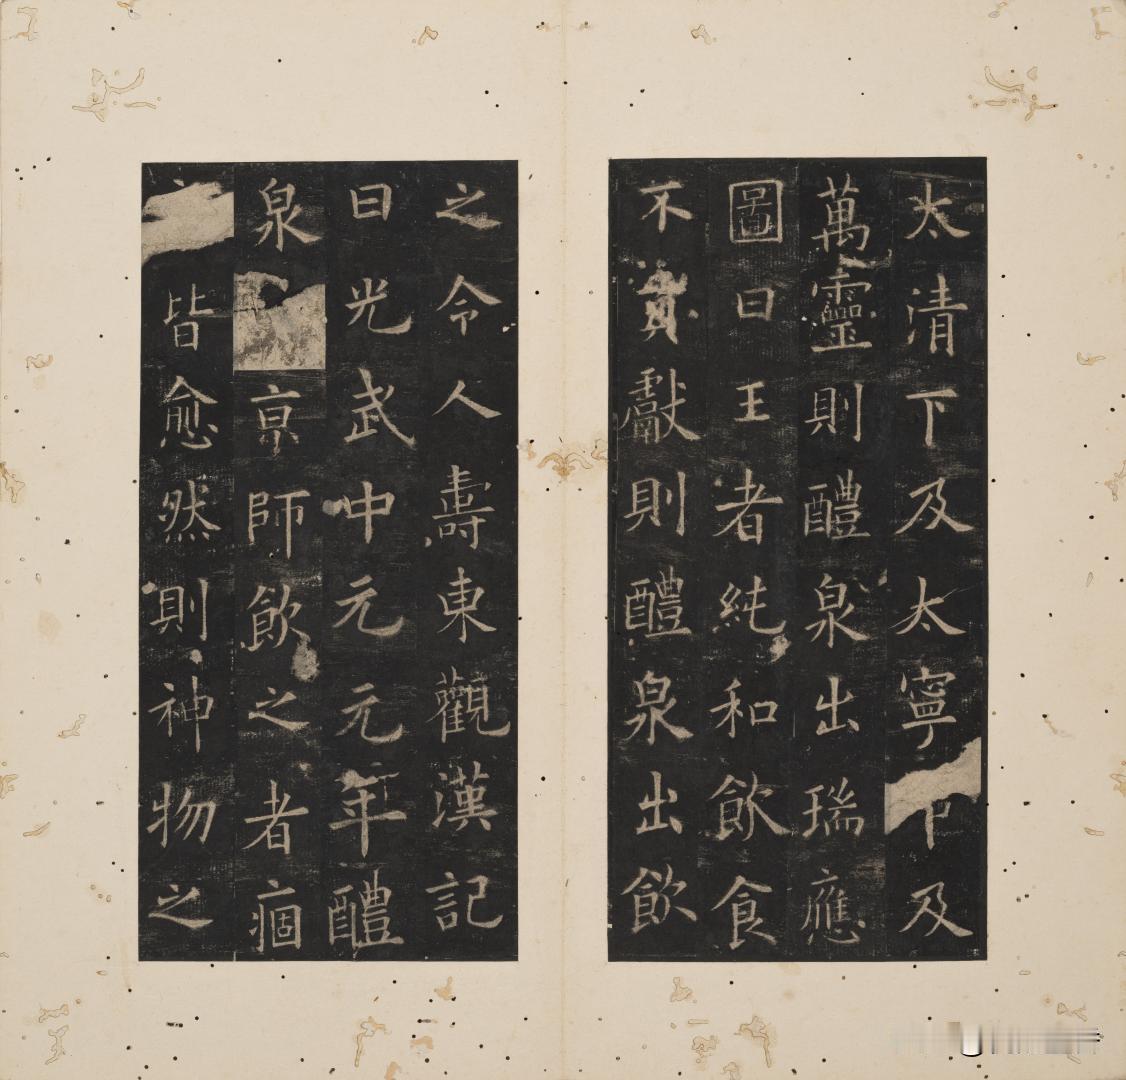 太清下及太寧及
萬靈則醴泉出瑞應
圖曰王者純和飲食
不貢獻則醴泉出飲
之令人壽東觀漢記
曰光武中元元年醴
泉亰師飲之者痼
皆愈然則神物之